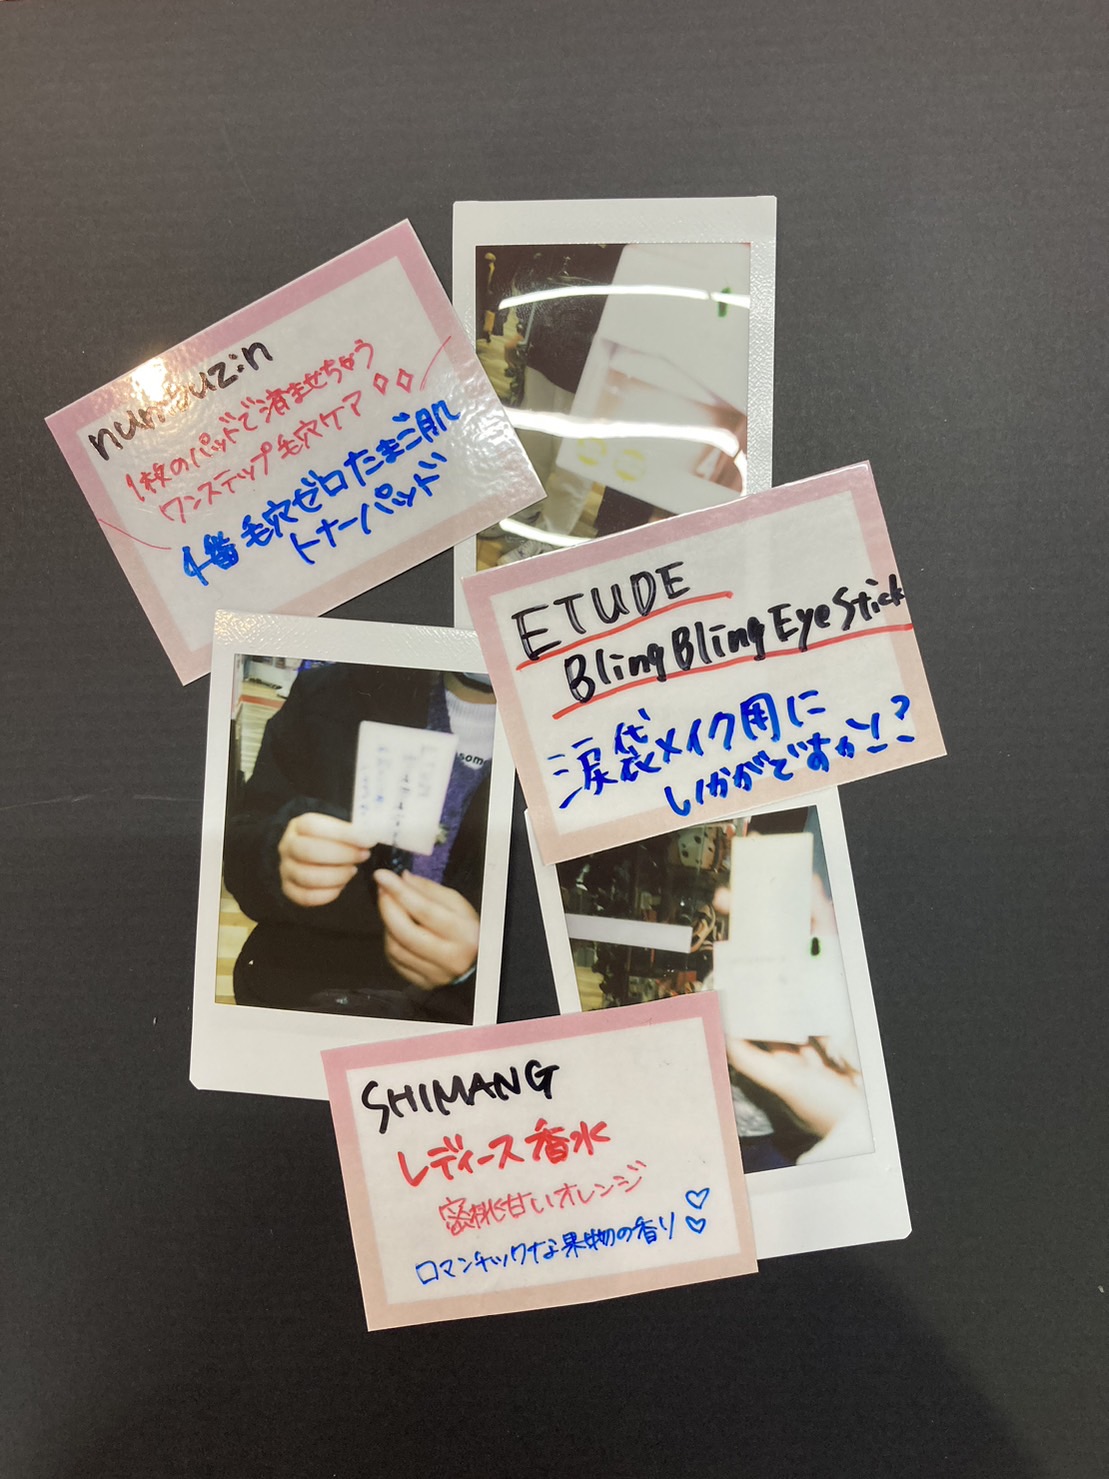 numbuzin
1枚のパッドで済ませちゃう
ワンステップ毛穴ケア
4番毛穴ゼロたまご肌
トナーパッド
ETUDE
Bling Bling Eye Stick
涙袋メイク用に
いかがですか!?
som
SHIMANG
レディース香水
蜜桃甘いオレンジ
ロマンチックな果物の香り♡♡